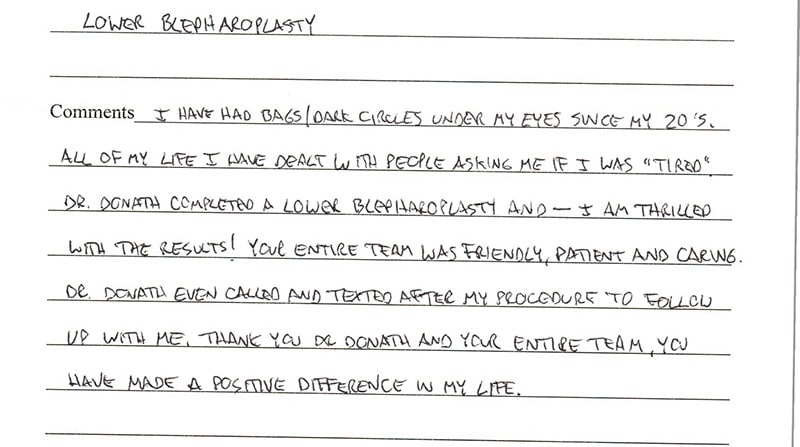 LOWER BLEPHAROPLASTY
Comments I HAVE HAD BAGS/DARK CIRCLES UNDER MY EYES SINCE MY 20'S.
ALL OF MY LIFE I HAVE DEALT WITH PEOPLE ASKING ME IF I WAS "TIRED"
DR. DONATH COMPLETED A LOWER BLEPHAROPLASTY AND — I AM THRILLED
WITH THE RESULTS! YOUR ENTIRE TEAM WAS FRIENDLY, PATIENT AND CARING.
DR. DONATH EVEN CALLED AND TEXTED AFTER MY PROCEDURE TO FOLLOW
UP WITH ME. THANK YOU DR DONATH AND YOUR ENTIRE TEAM, YOU
HAVE MADE A POSITIVE DIFFERENCE IN MY LIFE.